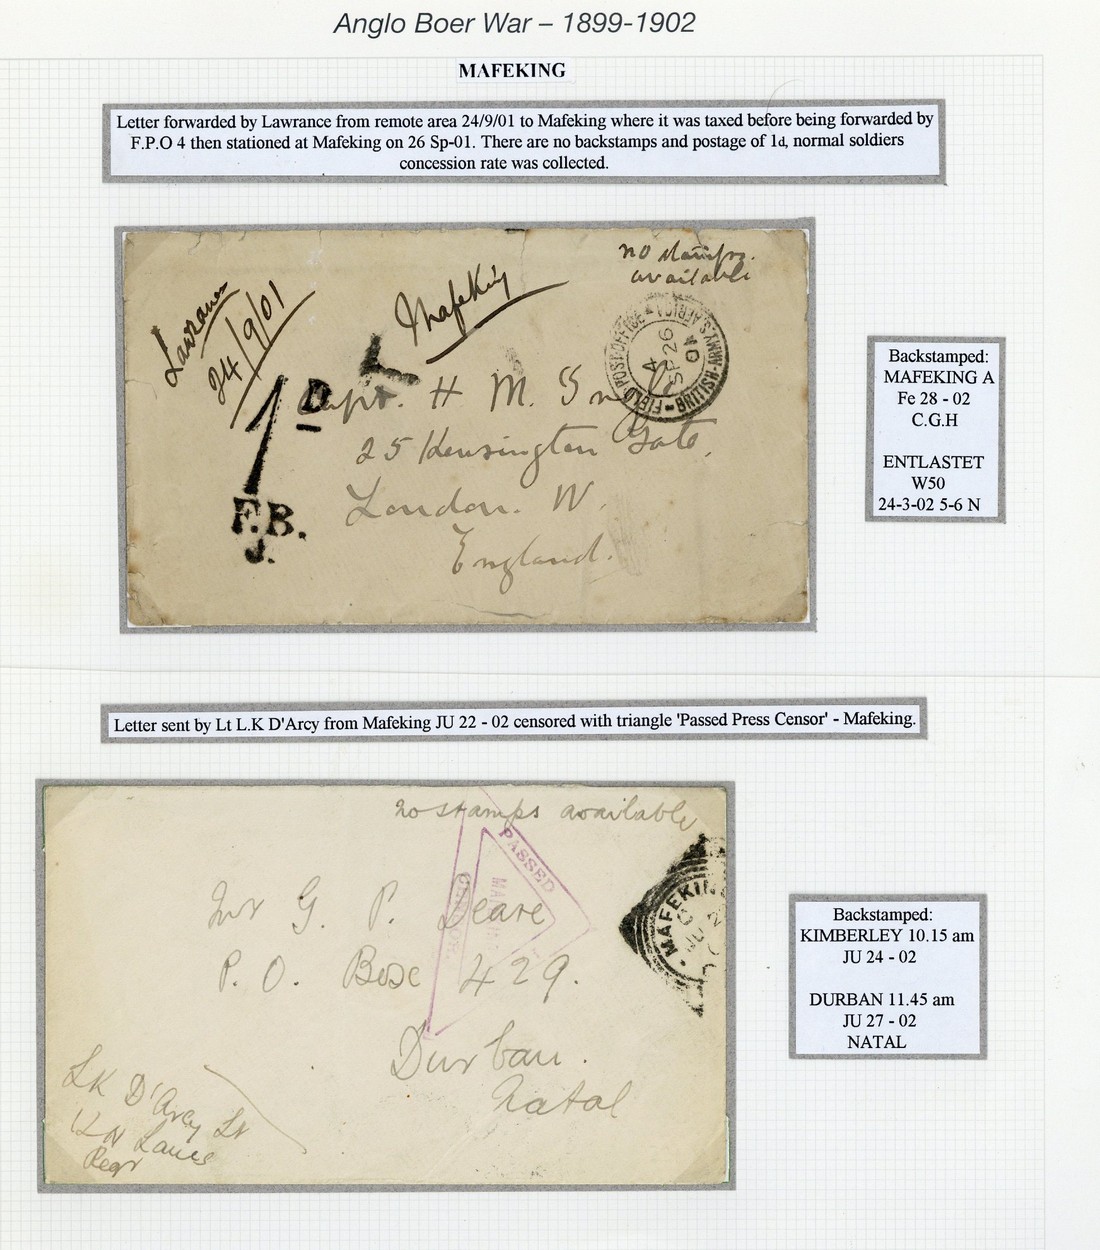 Anglo Boer War – 1899-1902
MAFEKING
Letter forwarded by Lawrance from remote area 24/9/01 to Mafeking where it was taxed before being forwarded by
F.P.O 4 then stationed at Mafeking on 26 Sp-01. There are no backstamps and postage of 1d, normal soldiers
concession rate was collected.
no stamps
available
Lawrance
24/9/01
Mafeking
T
1D
F.B.
J.
FIELD·POST·OFFICE·BRITISH·ARMY·S.AFRICA
4
SP 26
01
Capt. H M.
25 Kensington Gate,
London. W.
England.
Backstamped:
MAFEKING A
Fe 28 - 02
C.G.H
ENTLASTET
W50
24-3-02 5-6 N
Letter sent by Lt L.K D'Arcy from Mafeking JU 22 - 02 censored with triangle 'Passed Press Censor' - Mafeking.
no stamps available
PASSED
MAFEKING
Mr G. P. Deare
P.O. Box 429.
Durban.
Natal
LK D'Arcy Lt
Lanes
Regt
Backstamped:
KIMBERLEY 10.15 am
JU 24 - 02
DURBAN 11.45 am
JU 27 - 02
NATAL